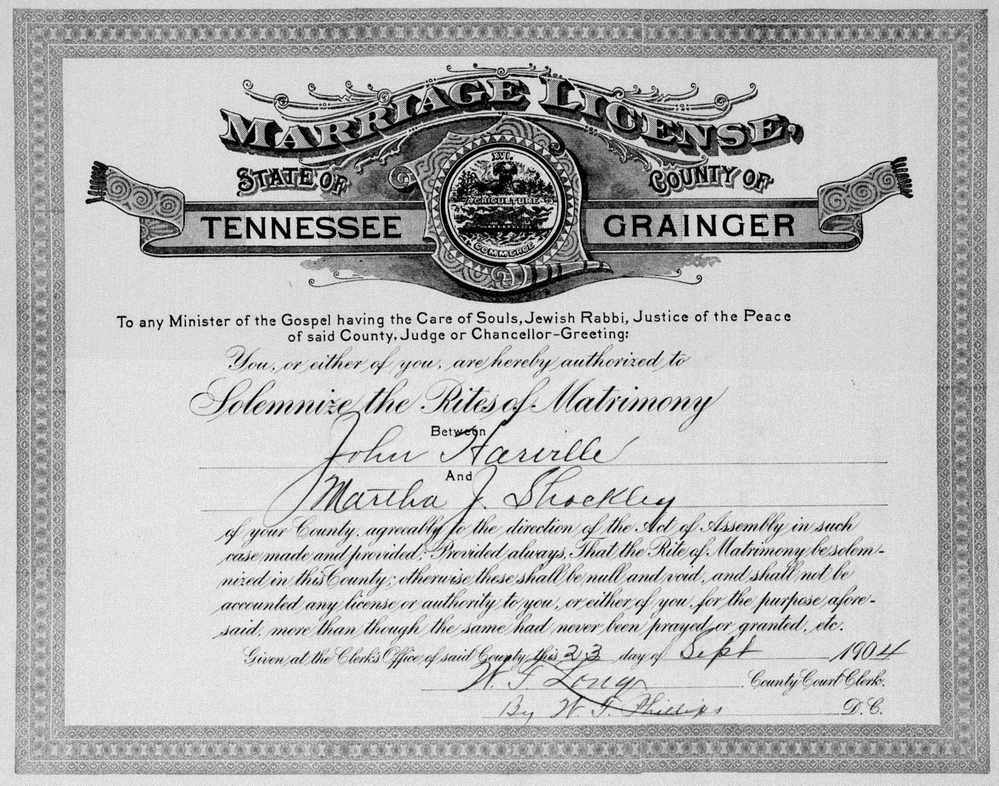 MARRIAGE LICENSE,
STATE OF TENNESSEE
COUNTY OF GRAINGER
AGRICULTURE
COMMERCE
To any Minister of the Gospel having the Care of Souls, Jewish Rabbi, Justice of the Peace
of said County, Judge or Chancellor-Greeting:
You, or either of you, are hereby authorized to
Solemnize the Rites of Matrimony
Between
John Harville
And
Martha J. Shockley
of your County, agreeably to the direction of the Act of Assembly in such
case made and provided; Provided always, That the Rite of Matrimony be solem-
nized in this County; otherwise these shall be null and void, and shall not be
accounted any license or authority to you, or either of you, for the purpose afore-
said, more than though the same had never been prayed or granted, etc.
Given at the Clerk's Office of said County this 23 day of Sept 1904
Long County Court Clerk.
By Phillips D.C.